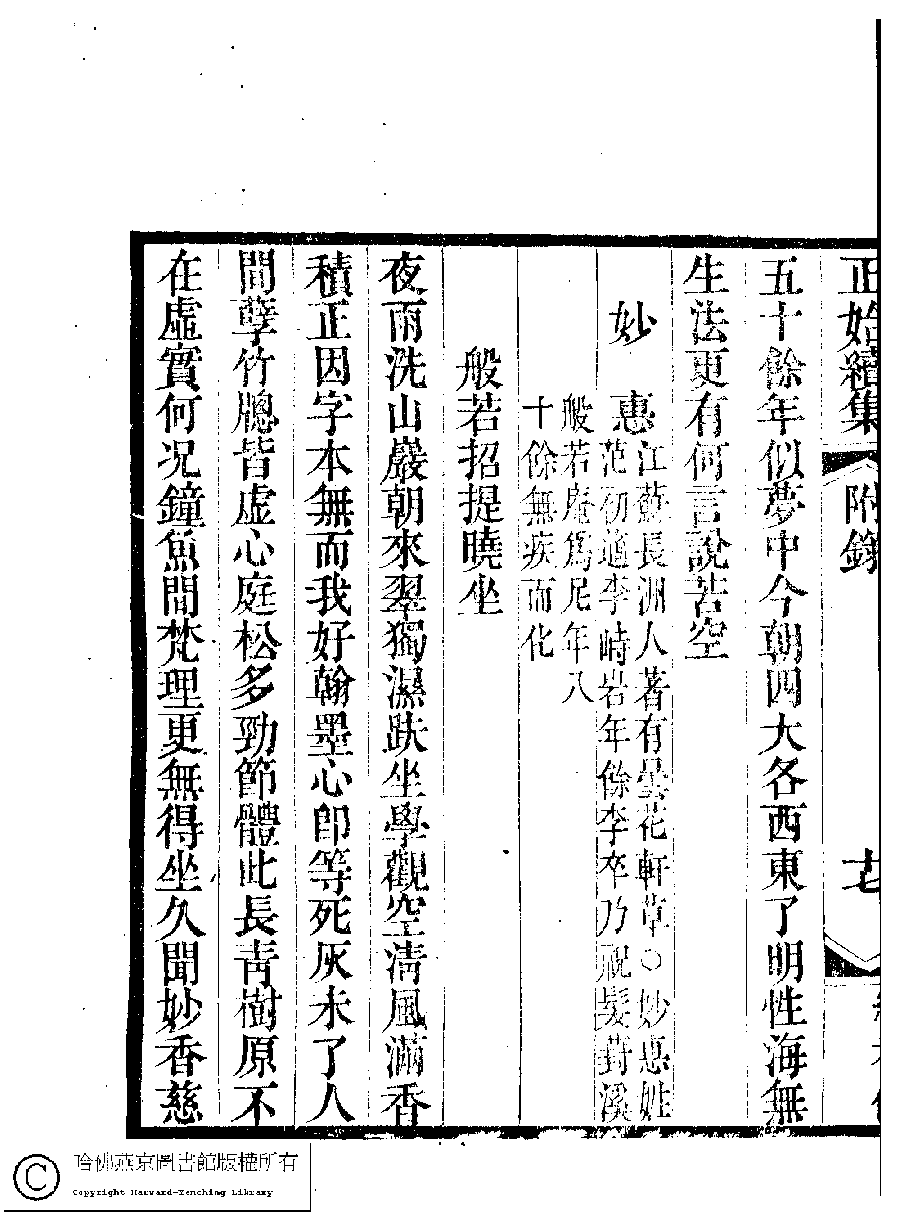 正始續集 附錄
五十餘年似夢中今朝四大各西東了明性海無
生法更有何言說苦空
妙 惠
江蘇長洲人著有曇花軒草○妙惠姓
范初適李峙岩年餘李卒乃祝髮葑溪
般若庵爲尼年八
十餘無疾而化
般若招提曉坐
夜雨洗山巖朝來翠獨濕趺坐學觀空淸風滿香
積正因字本無而我好翰墨心卽等死灰未了人
間孽竹牕皆虛心庭松多勁節體此長靑樹原不
在虛實何況鐘魚間梵理更無得坐久聞妙香慈
哈佛燕京圖書館版權所有
Copyright Harvard-Yenching Library